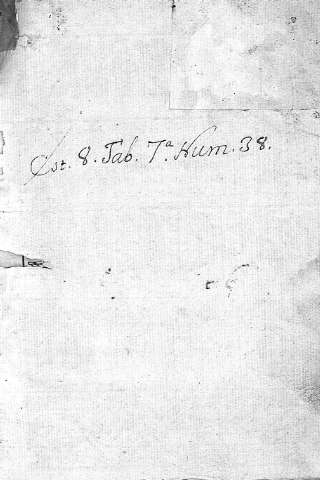 Est. 8. Tab. 7.ª Num. 38.